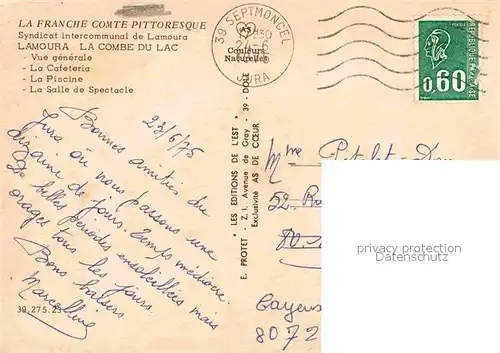 LA FRANCHE COMTE PITTORESQUE
Syndicat intercommunal de Lamoura
LAMOURA - LA COMBE DU LAC
- Vue générale
- La Cafeteria
- La Piscine
- La Salle de Spectacle
23/6/75
Bonnes amitiés du
Jura où nous passons une
dizaine de jours. Temps médiocre.
De belles périodes ensoleillées mais
orages tous les jours.
Bons baisers.
Marcelline
39.275.23
39 SEPTMONCEL
JURA
AS
Couleurs
Naturelles
E. PROTET - Z. I. Avenue de Gray - 39 - DOLE
" LES EDITIONS DE L'EST "
Exclusivité AS DE CŒUR
0,60
REPUBLIQUE FRANÇAISE
POSTES
Mme
52
80
privacy protection
protection de la vie privée
Cayeux
8072